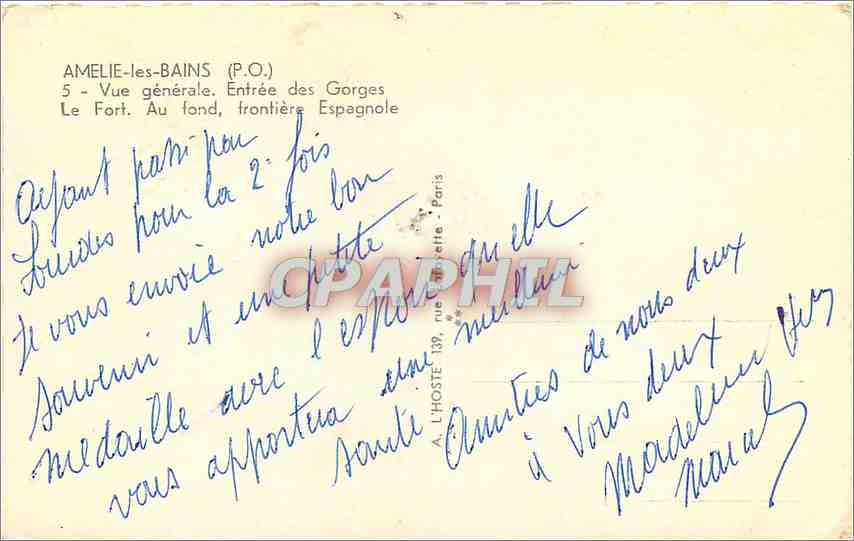 AMELIE-les-BAINS (P.O.)
5 - Vue générale. Entrée des Gorges
Le Fort. Au fond, frontière Espagnole
Ayant passé par
Lourdes pour la 2e fois
Je vous envoie notre bon
souvenir et une petite
medaille avec l'espoir qu'elle
vous apportera une meilleure
santé
Amitiés de nous deux
à Vous deux
Madeleine
Marcel
A. L'HOSTE 139, rue Lafayette - Paris
CPAPHIL